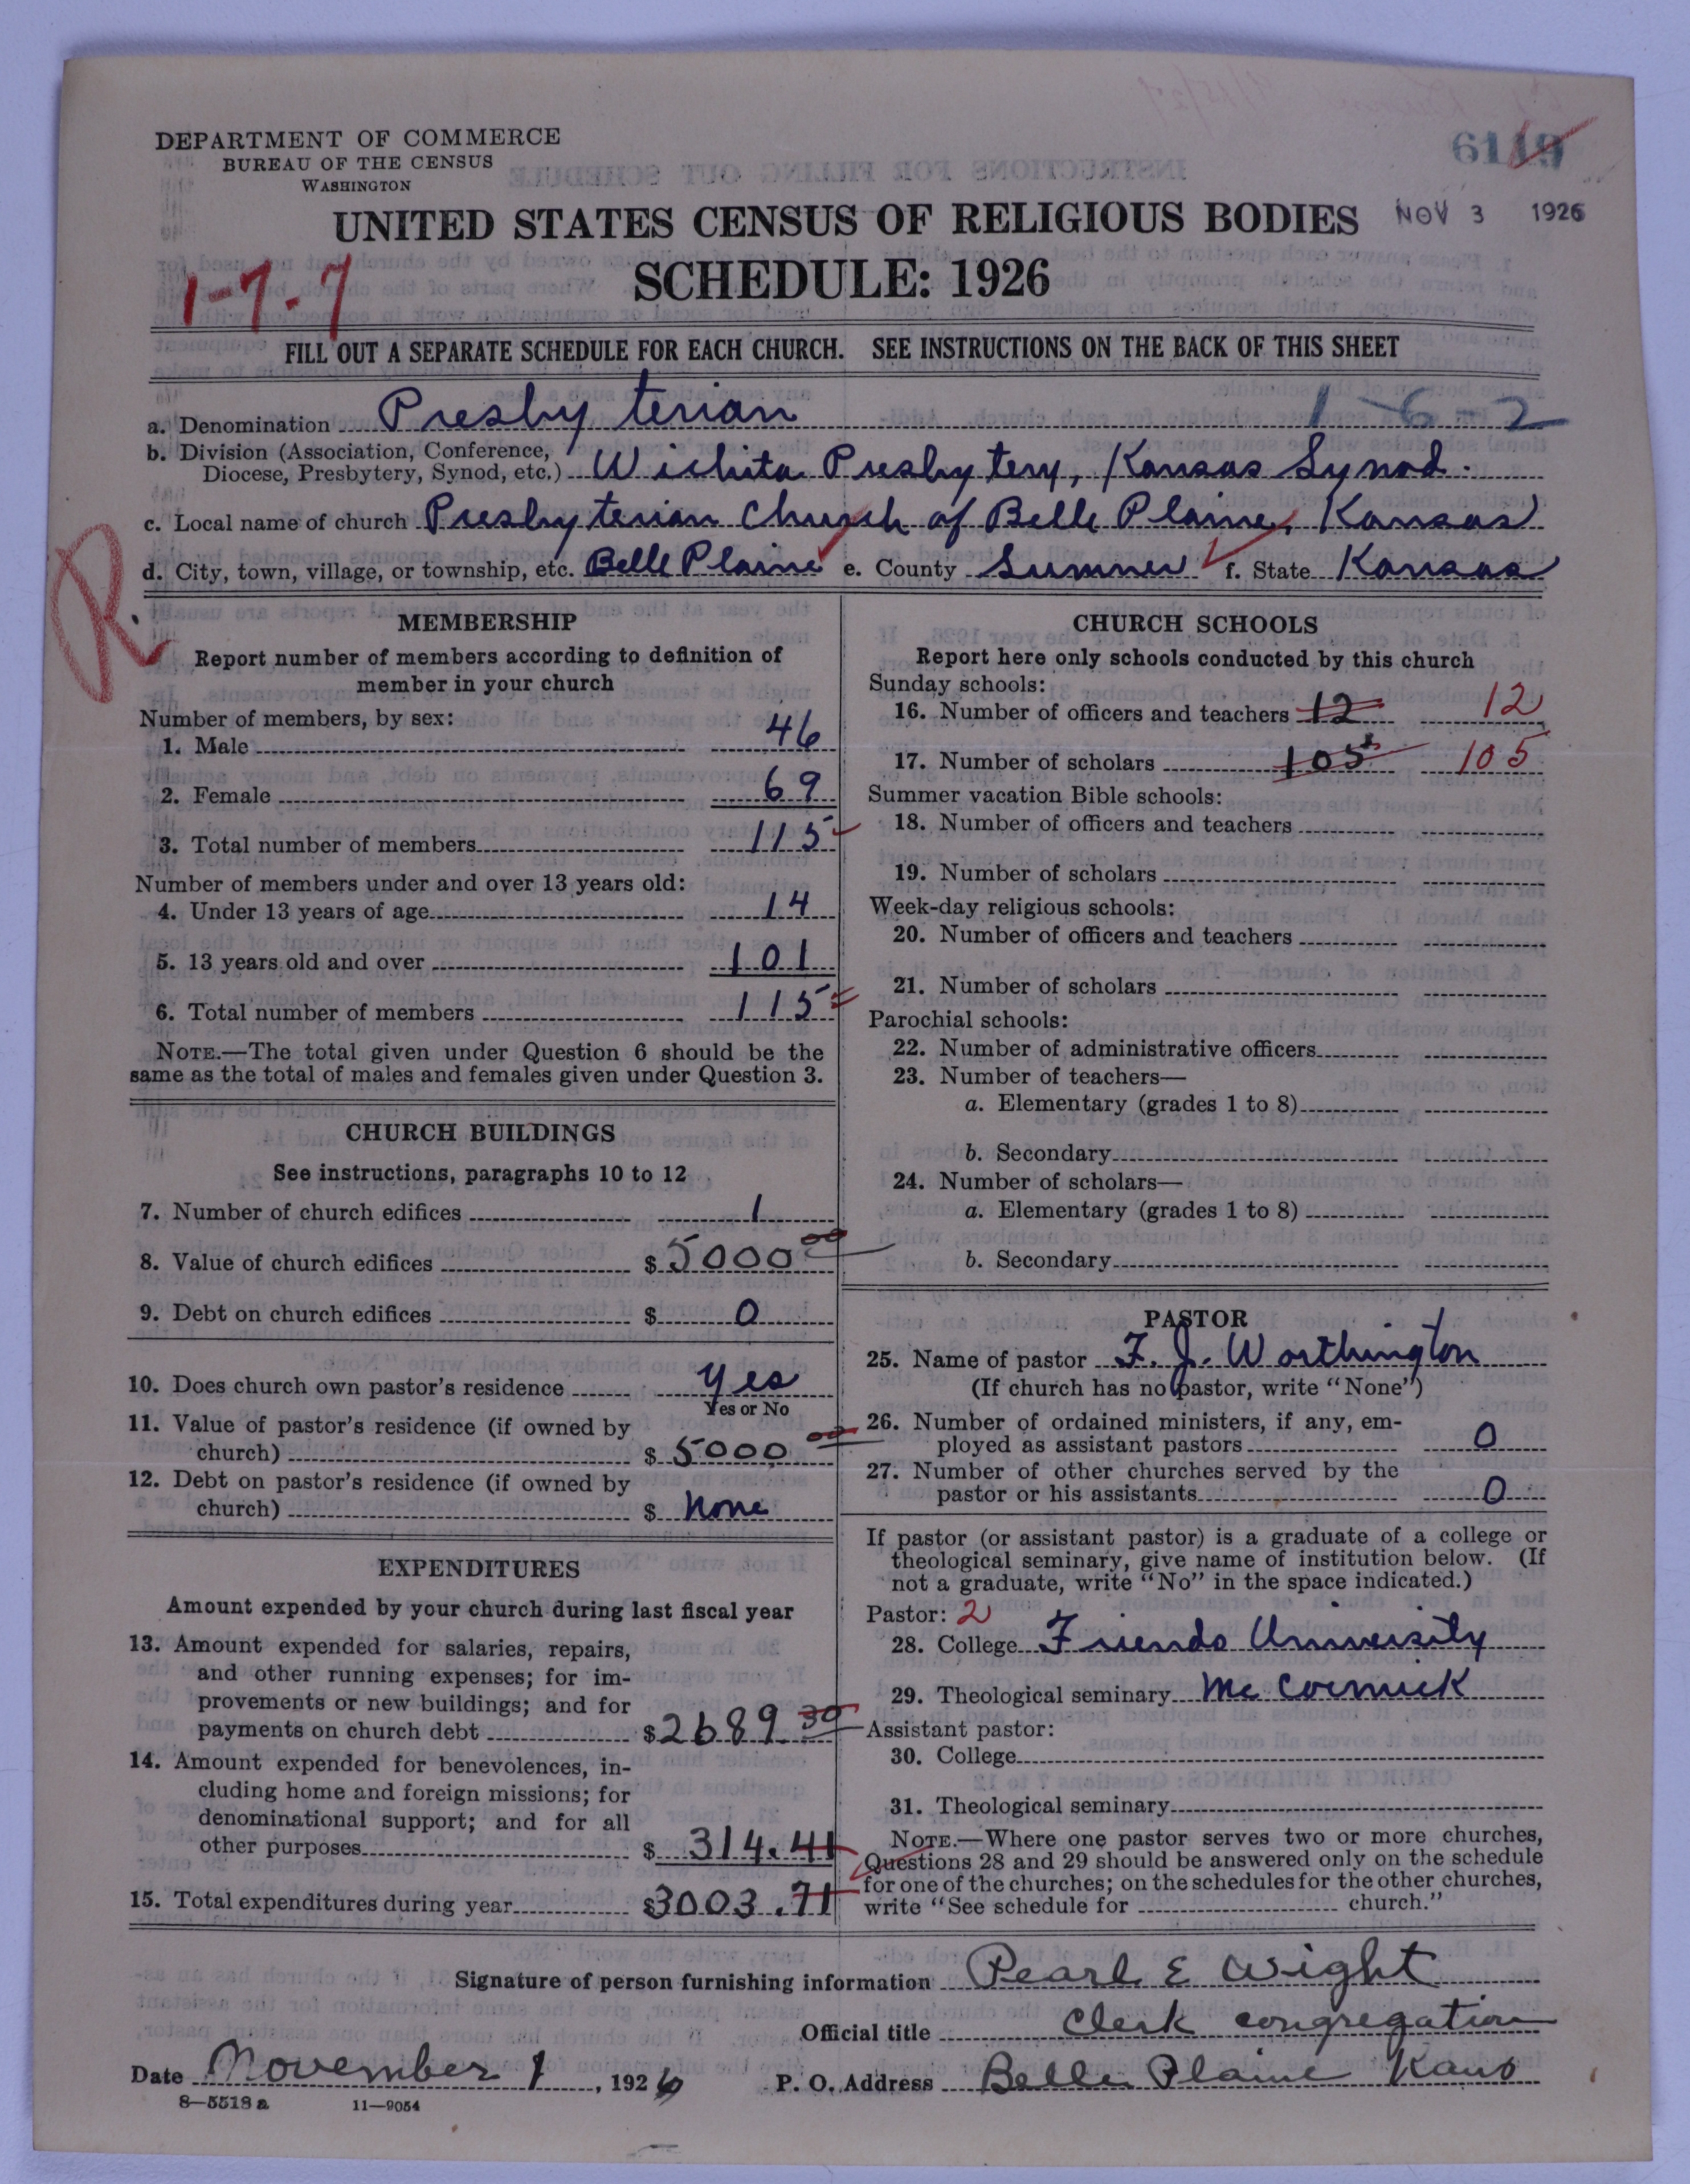 DEPARTMENT OF COMMERCE
BUREAU OF THE CENSUS
WASHINGTON
6119
NOV 3 1926
UNITED STATES CENSUS OF RELIGIOUS BODIES
SCHEDULE: 1926
1-7-7
FILL OUT A SEPARATE SCHEDULE FOR EACH CHURCH. SEE INSTRUCTIONS ON THE BACK OF THIS SHEET
a. Denomination Presbyterian 1-6-2
b. Division (Association, Conference,
Diocese, Presbytery, Synod, etc.) Wichita Presbytery, Kansas Synod.
c. Local name of church Presbyterian Church of Belle Plaine, Kansas
d. City, town, village, or township, etc. Belle Plaine e. County Sumner f. State Kansas
R.
MEMBERSHIP
Report number of members according to definition of
member in your church
Number of members, by sex:
1. Male 46
2. Female 69
3. Total number of members 115
Number of members under and over 13 years old:
4. Under 13 years of age 14
5. 13 years old and over 101
6. Total number of members 115
NOTE.—The total given under Question 6 should be the
same as the total of males and females given under Question 3.
CHURCH BUILDINGS
See instructions, paragraphs 10 to 12
7. Number of church edifices 1
8. Value of church edifices $ 5000 00
9. Debt on church edifices $ 0
10. Does church own pastor's residence yes
Yes or No
11. Value of pastor's residence (if owned by
church) $ 5000 00
12. Debt on pastor's residence (if owned by
church) $ None
EXPENDITURES
Amount expended by your church during last fiscal year
13. Amount expended for salaries, repairs,
and other running expenses; for im-
provements or new buildings; and for
payments on church debt $ 2689 30
14. Amount expended for benevolences, in-
cluding home and foreign missions; for
denominational support; and for all
other purposes $ 314.41
15. Total expenditures during year $ 3003.71
CHURCH SCHOOLS
Report here only schools conducted by this church
Sunday schools:
16. Number of officers and teachers 12 12
17. Number of scholars 105 105
Summer vacation Bible schools:
18. Number of officers and teachers
19. Number of scholars
Week-day religious schools:
20. Number of officers and teachers
21. Number of scholars
Parochial schools:
22. Number of administrative officers
23. Number of teachers—
a. Elementary (grades 1 to 8)
b. Secondary
24. Number of scholars—
a. Elementary (grades 1 to 8)
b. Secondary
PASTOR
25. Name of pastor F. J. Worthington
(If church has no pastor, write "None")
26. Number of ordained ministers, if any, em-
ployed as assistant pastors 0
27. Number of other churches served by the
pastor or his assistants 0
If pastor (or assistant pastor) is a graduate of a college or
theological seminary, give name of institution below. (If
not a graduate, write "No" in the space indicated.)
Pastor: 2
28. College Friends University
29. Theological seminary McCormick
Assistant pastor:
30. College
31. Theological seminary
NOTE.—Where one pastor serves two or more churches,
Questions 28 and 29 should be answered only on the schedule
for one of the churches; on the schedules for the other churches,
write "See schedule for church."
Signature of person furnishing information Pearl E Wight
Official title Clerk congregation
Date November 1, 1926 P. O. Address Belle Plaine Kans
8—5518 a 11—9054